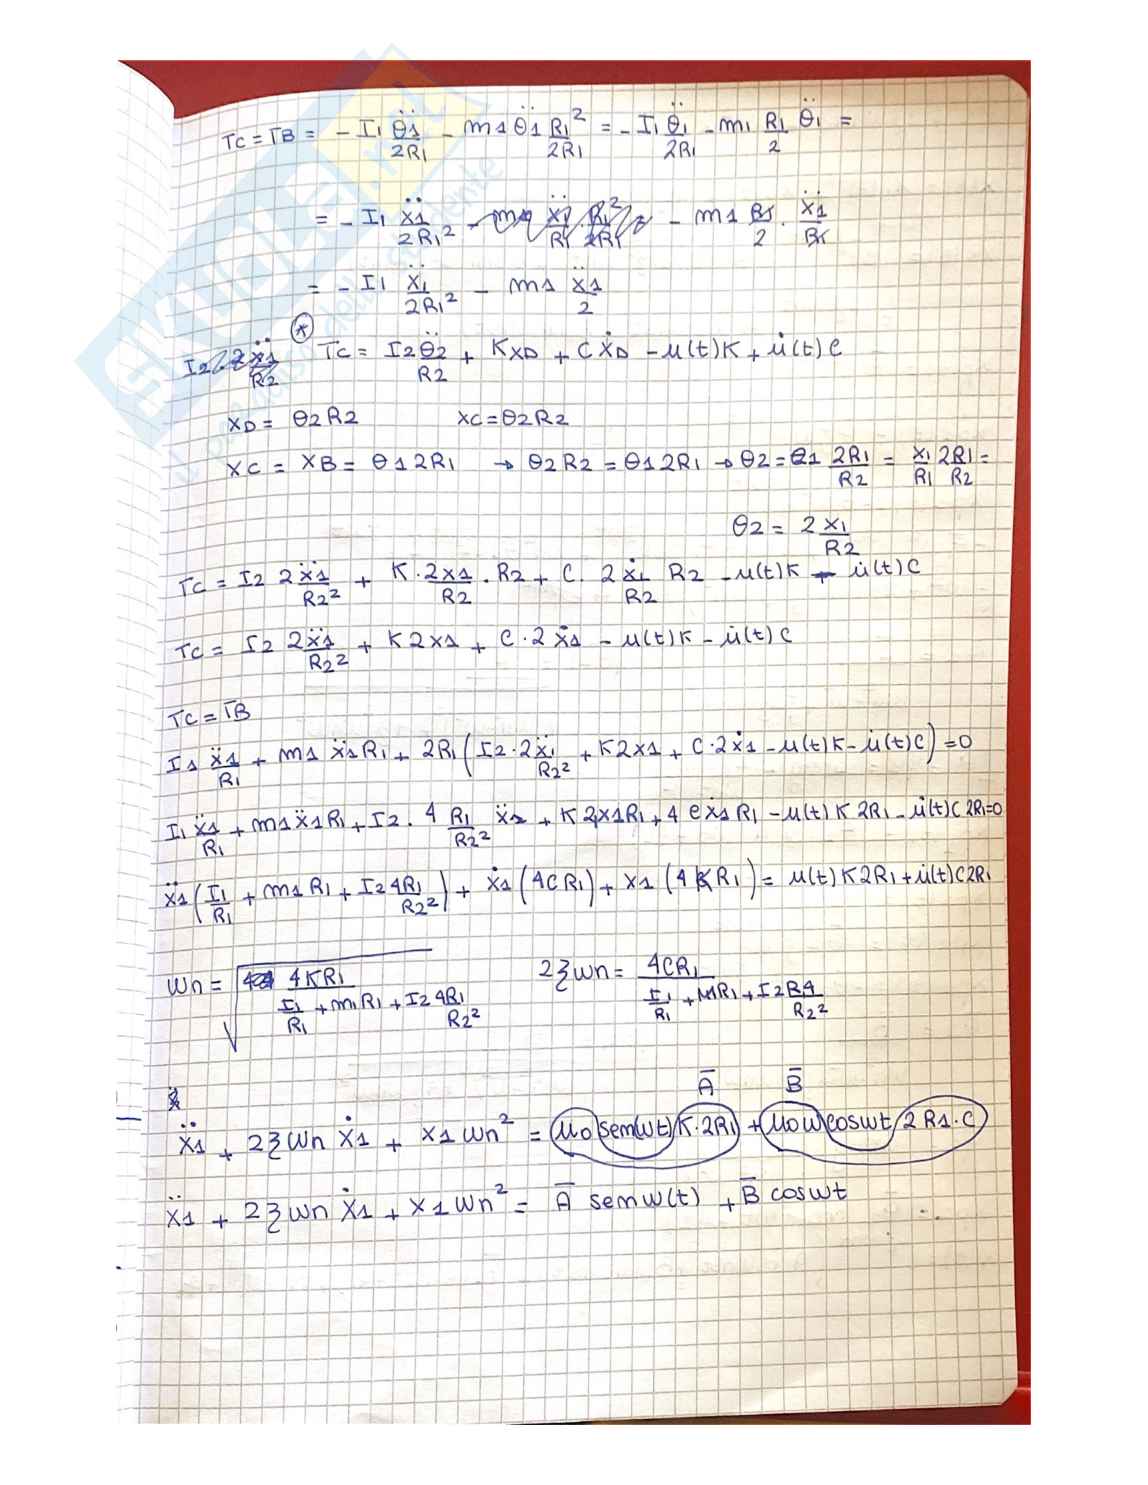 TC = TB = - I1 θ̈1/2R1 - m1 θ̈1 R1²/2R1 = - I1 θ̈1/2R1 - m1 R1/2 θ̈1 =
= - I1 ẍ1/2R1² - m1 R1/2 · ẍ1/R1
= - I1 ẍ1/2R1² - m1 ẍ1/2
* TC = I2 θ̈2/R2 + K xD + C ẋD - u(t)K + u̇(t) C
xD = θ2 R2   xC = θ2 R2
xC = xB = θ1 2R1 → θ2 R2 = θ1 2R1 → θ2 = θ1 2R1/R2 = x1/R1 2R1/R2 =
θ2 = 2 x1/R2
TC = I2 2ẍ1/R2² + K · 2x1/R2 · R2 + C · 2ẋ1/R2 R2 - u(t)K - u̇(t) C
TC = I2 2ẍ1/R2² + K2x1 + C · 2ẋ1 - u(t)K - u̇(t) C
TC = TB
I1 ẍ1/R1 + m1 ẍ1 R1 + 2R1 (I2 · 2ẍ1/R2² + K2x1 + C · 2ẋ1 - u(t)K - u̇(t)C) = 0
I1 ẍ1/R1 + m1 ẍ1 R1 + I2 · 4 R1/R2² ẍ1 + K 2x1R1 + 4 C ẋ1 R1 - u(t) K 2R1 - u̇(t) C 2R1 = 0
ẍ1 (I1/R1 + m1 R1 + I2 4R1/R2²) + ẋ1 (4CR1) + x1 (4 K R1) = u(t) K2R1 + u̇(t) C2R1
Wn = √(4KR1 / (I1/R1 + m1R1 + I2 4R1/R2²))   2ξWn = 4CR1 / (I1/R1 + MR1 + I2 R4/R2²)
A̅   B̅
ẍ1 + 2ξWn ẋ1 + x1 Wn² = u0 sen(wt) K · 2R1 + u0 w cos wt 2R1 · C
ẍ1 + 2ξ Wn ẋ1 + x1 Wn² = A̅ sen w(t) + B̅ cos wt